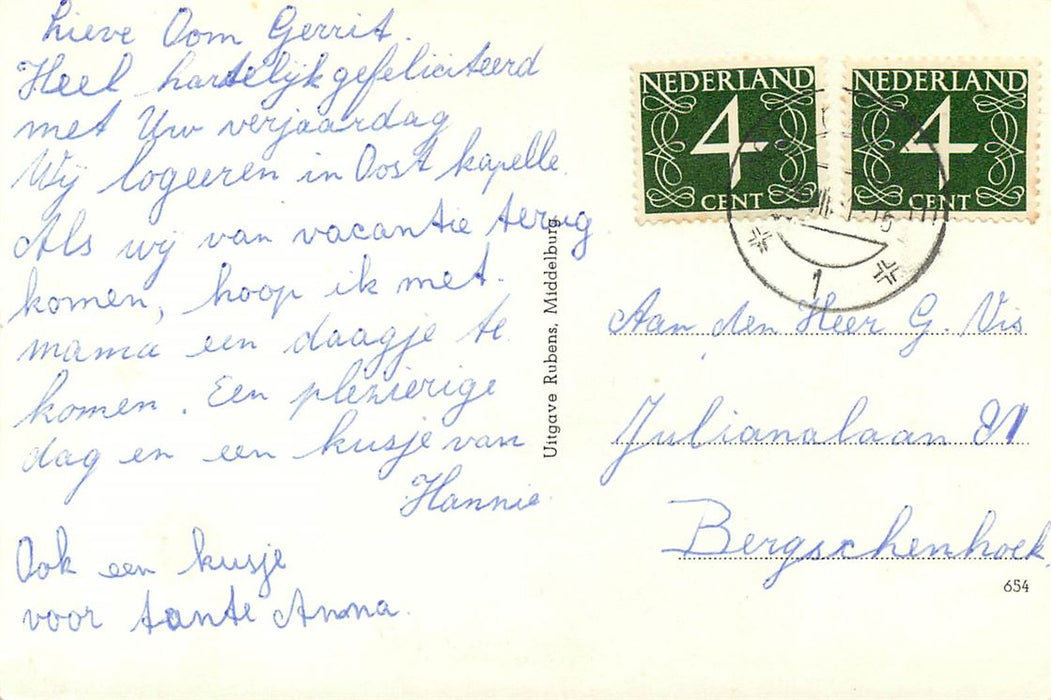 Lieve Oom Gerrit.
Heel hartelijk gefeliciteerd
met Uw verjaardag
Wij logeeren in Oost kapelle.
Als wij van vacantie terug
komen, hoop ik met
mama een daagje te
komen. Een plezierige
dag en een kusje van
Hannie.
Ook een kusje
voor tante Anna.
Uitgave Rubens, Middelburg
NEDERLAND
4
CENT
NEDERLAND
4
CENT
1
Aan den Heer G. Vis
Julianalaan 81
Bergschenhoek
654